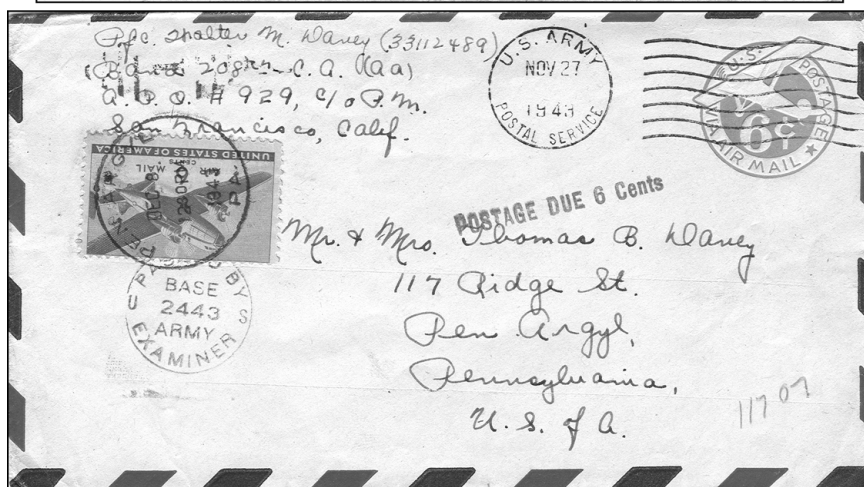 Pfc. Walter M. Davey (33112489)
208th C. A. (aa)
A. P. O. # 929, c/o P. M.
San Francisco, Calif.
U.S. ARMY
NOV 27
1943
POSTAL SERVICE
U.S. POSTAGE
6¢
VIA AIR MAIL
UNITED STATES OF AMERICA
AIR
MAIL
CENTS
PEN ARGYL
DEC 8
1943
PA.
POSTAGE DUE 6 Cents
Mr. & Mrs. Thomas B. Davey
117 Ridge St.
Pen Argyl,
Pennsylvania,
U. S. of A.
PASSED BY
BASE
2443
ARMY
EXAMINER
U S